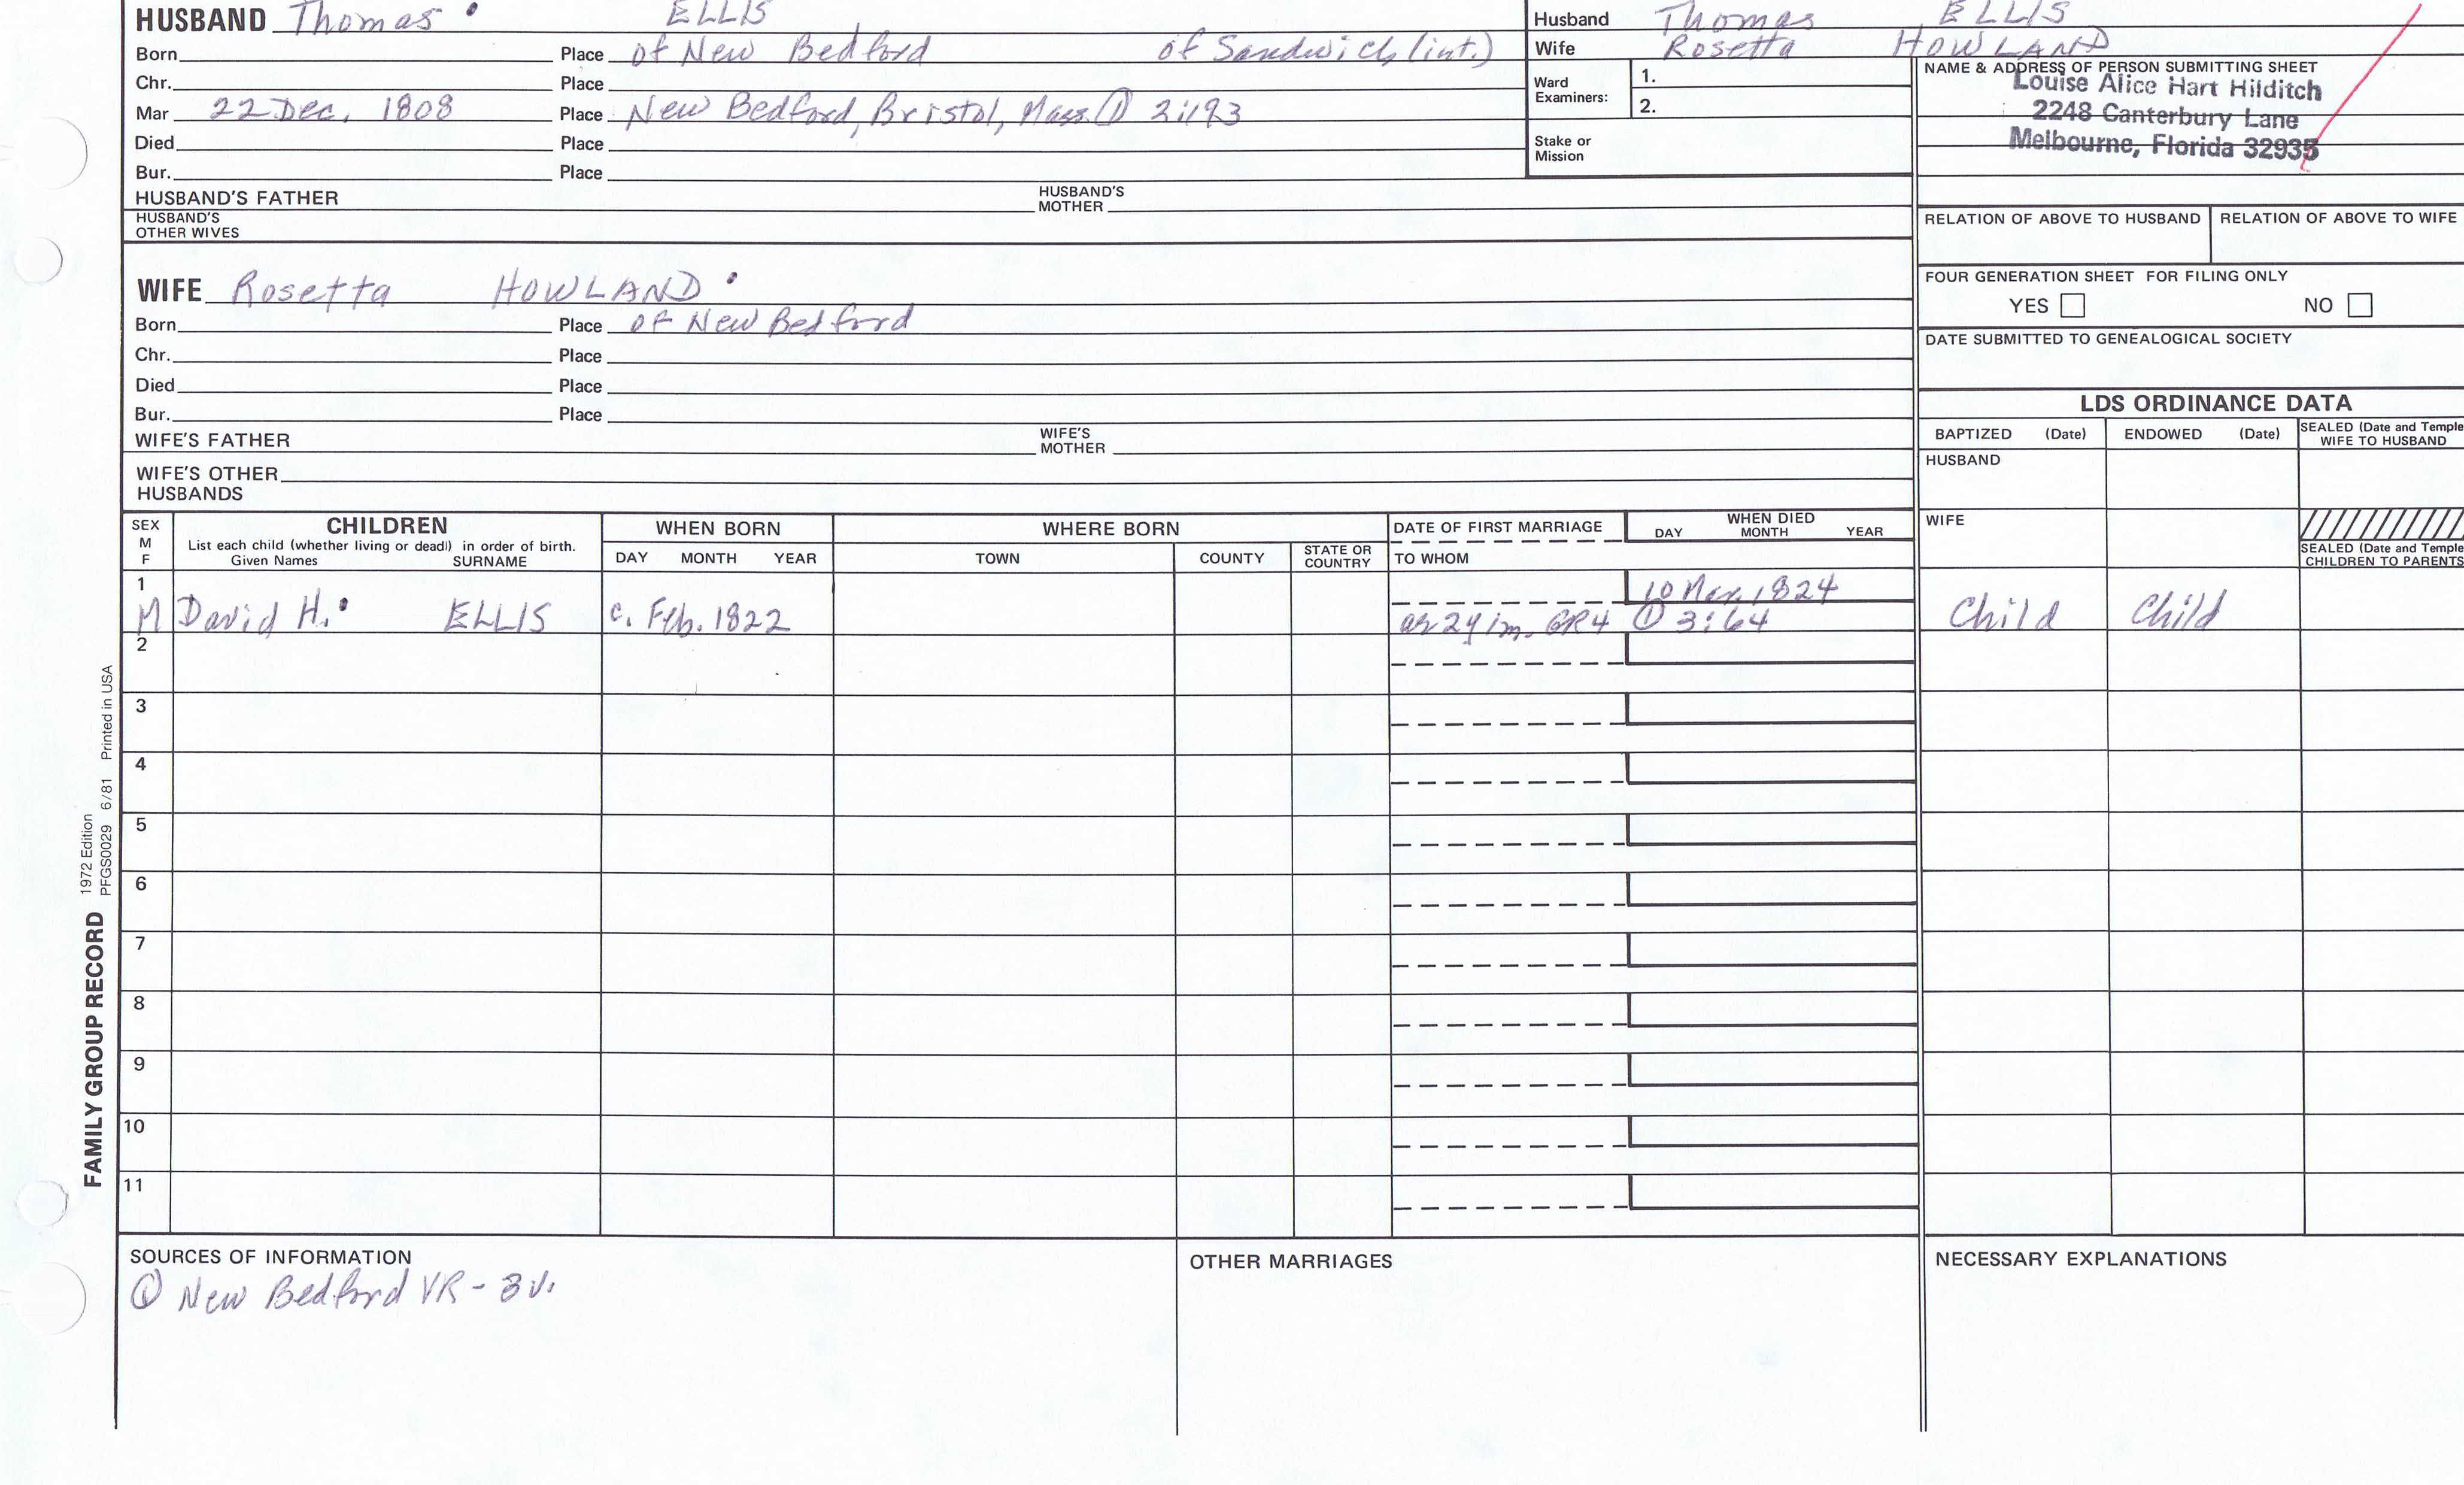 HUSBAND Thomas ELLIS
Born Place of New Bedford of Sandwich (int.)
Chr. Place
Mar 22 Dec. 1808 Place New Bedford, Bristol, Mass. ① 2:193
Died Place
Bur. Place
HUSBAND'S FATHER HUSBAND'S MOTHER
HUSBAND'S OTHER WIVES
Husband Thomas ELLIS
Wife Rosetta HOWLAND
Ward Examiners: 1.
2.
Stake or Mission
NAME & ADDRESS OF PERSON SUBMITTING SHEET
Louise Alice Hart Hilditch
2248 Canterbury Lane
Melbourne, Florida 32935
RELATION OF ABOVE TO HUSBAND RELATION OF ABOVE TO WIFE
FOUR GENERATION SHEET FOR FILING ONLY
YES NO
DATE SUBMITTED TO GENEALOGICAL SOCIETY
WIFE Rosetta HOWLAND
Born Place of New Bedford
Chr. Place
Died Place
Bur. Place
WIFE'S FATHER WIFE'S MOTHER
WIFE'S OTHER HUSBANDS
LDS ORDINANCE DATA
BAPTIZED (Date) ENDOWED (Date) SEALED (Date and Temple
WIFE TO HUSBAND
HUSBAND
WIFE
SEALED (Date and Temple
CHILDREN TO PARENTS
SEX
M
F
CHILDREN
List each child (whether living or dead) in order of birth.
Given Names SURNAME
WHEN BORN
DAY MONTH YEAR
WHERE BORN
TOWN COUNTY STATE OR COUNTRY
DATE OF FIRST MARRIAGE
TO WHOM
WHEN DIED
DAY MONTH YEAR
1 10 Mar. 1824
M David H. ELLIS c. Feb. 1822 ae 2y 1m. GR4 ① 3:64 Child Child
2
3
4
5
6
7
8
9
10
11
FAMILY GROUP RECORD
1972 Edition
PFGS0029 6/81 Printed in USA
SOURCES OF INFORMATION
① New Bedford VR - 3 v.
OTHER MARRIAGES
NECESSARY EXPLANATIONS